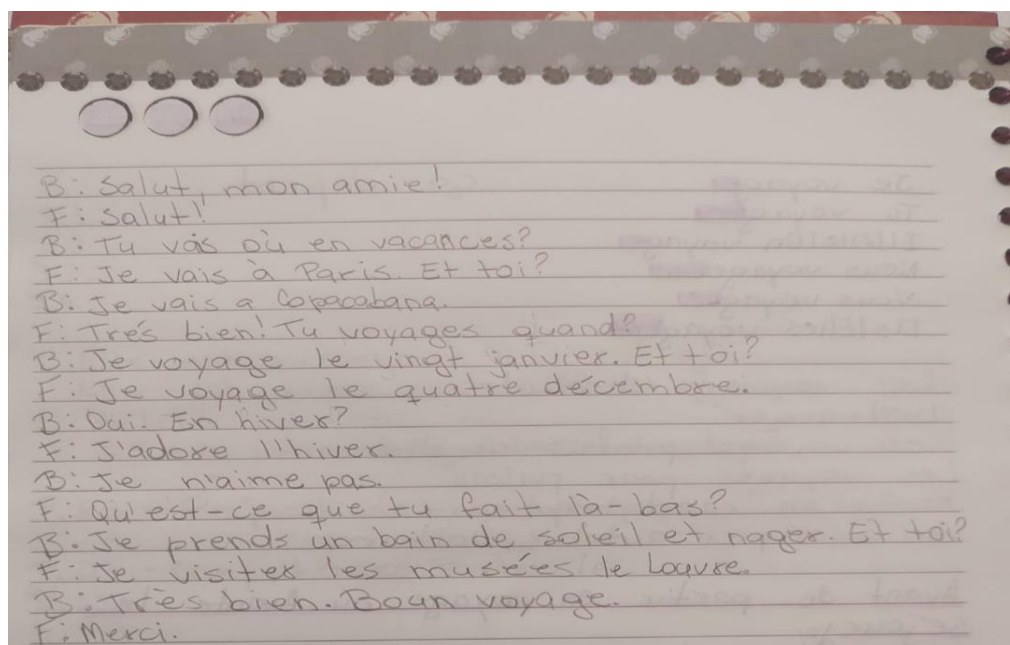 B: Salut, mon amie!
F: Salut!
B: Tu vais où en vacances?
F: Je vais à Paris. Et toi?
B: Je vais a Copacabana.
F: Trés bien! Tu voyages quand?
B: Je voyage le vingt janvier. Et toi?
F: Je voyage le quatre décembre.
B: Oui. En hiver?
F: J'adore l'hiver.
B: Je n'aime pas.
F: Qu'est-ce que tu fait là-bas?
B: Je prends un bain de soleil et nager. Et toi?
F: Je visiter les musées le Louvre.
B: Très bien. Boun voyage.
F: Merci.